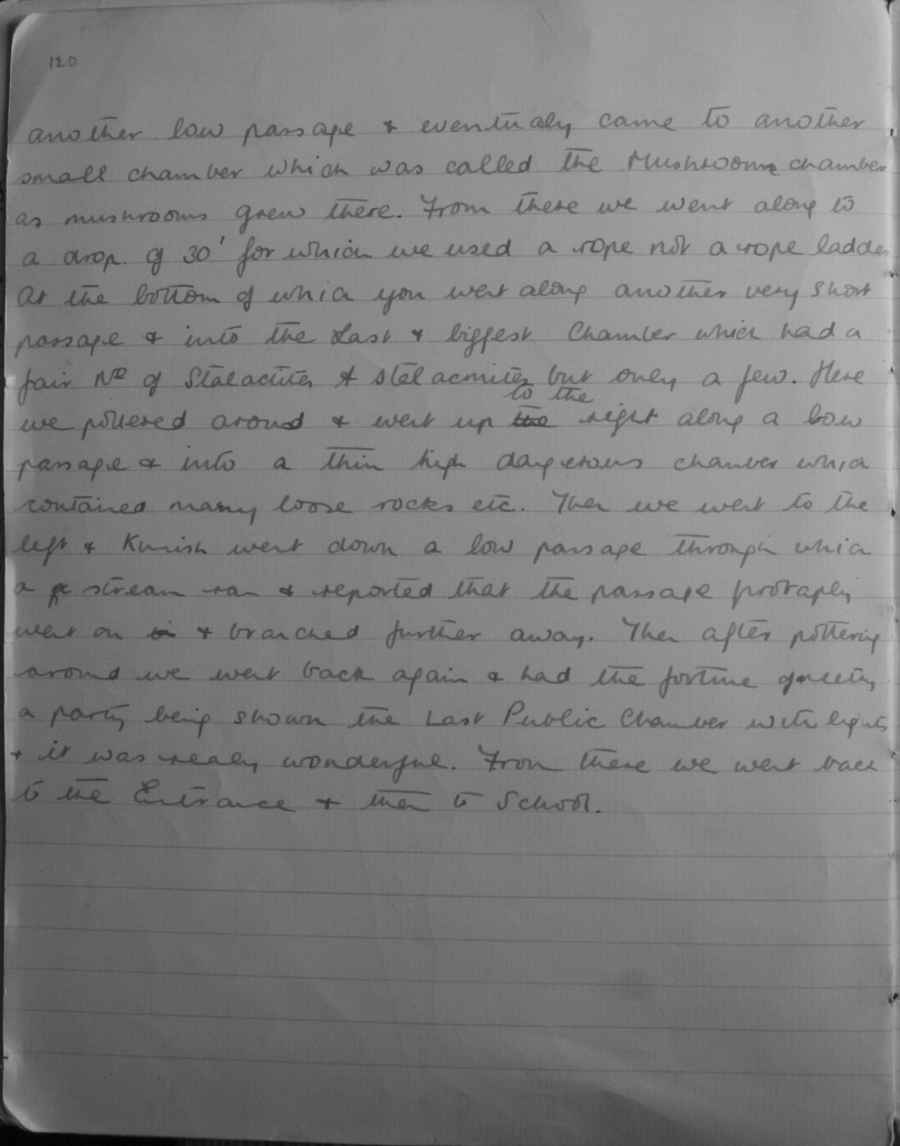 120
another low passage & eventualy came to another
small chamber which was called the Mushroom chamber
as mushrooms grew there. From there we went along to
a drop of 30' for which we used a rope not a rope ladder
At the bottom of which you went along another very short
passage & into the Last & biggest Chamber which had a
fair No of Stalactites & stalacmites but only a few. Here
to the
we pottered around & went up the right along a low
passage & into a thin high dangerous chamber which
contained many loose rocks etc. Then we went to the
left & went down a low passage through which
a stream ran & reported that the passage probaply
went on & branched further away. Then after pottering
around we went back again & had the fortune of meeting
a party being shown the Last Public Chamber with lights
& it was realy wonderful. From there we went back
to the Entrance & then to School.